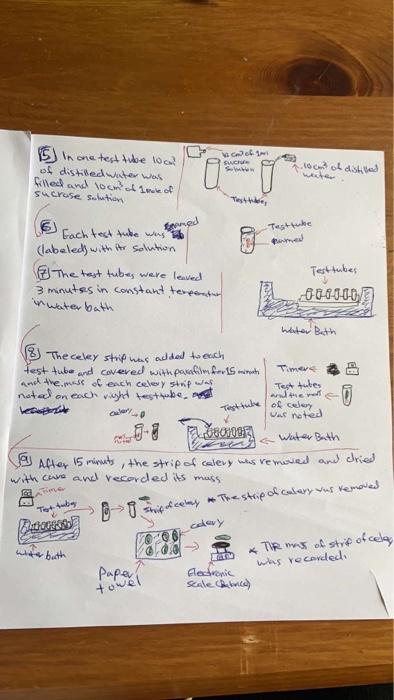 5) In one test tube 10cm³
of distilled water was
filled and 10cm³ of 1 mole of
sucrose solution
10cm³ of 1mol
sucrose
solution
10cm³ of distilled
water
Test tubes
6) Each test tube was named
(labeled) with its solution
Test tube
named
7) The test tubes were leaved
3 minutes in constant
in water bath
Test tubes
Water Bath
8) The celey strip was added to each
test tube and covered with parafilm for 15 minuts
and the mass of each celery strip was
noted on each right test tube.
Timer
Test tubes
and the mass
of celery
was noted
celery
Test tube
Water Bath
9) After 15 minuts, the strip of celery was removed and dried
with care and recorded its mass
Timer
Test tubes
Strip of celery
* The strip of was removed
water bath
celery
Paper
towel
Electronic
scale
* The mass of strip of celey
was recorded.